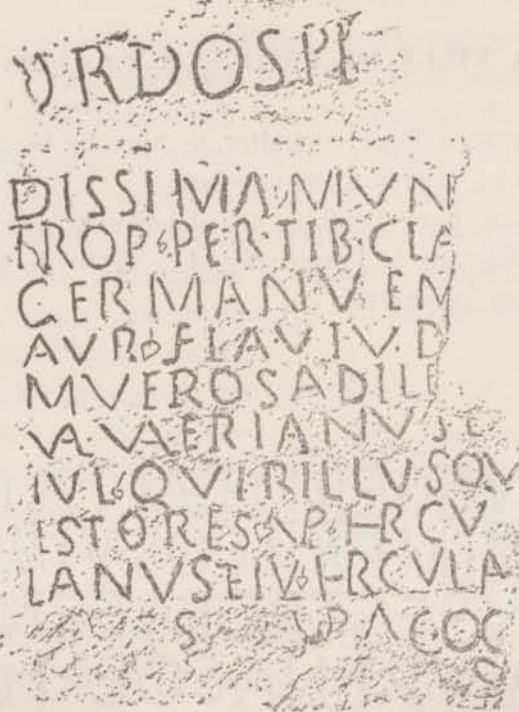 VRDOSPL
DISSIMAMVN
TROP PER TIB CLA
GERMANV EM
AVR FLAVIV D
MVEROSADILE
VA VAERIANVSE
IVL QVIRILLVSQV
ESTORES AP HRCV
LANVSEIV HRCVLA
ACOC